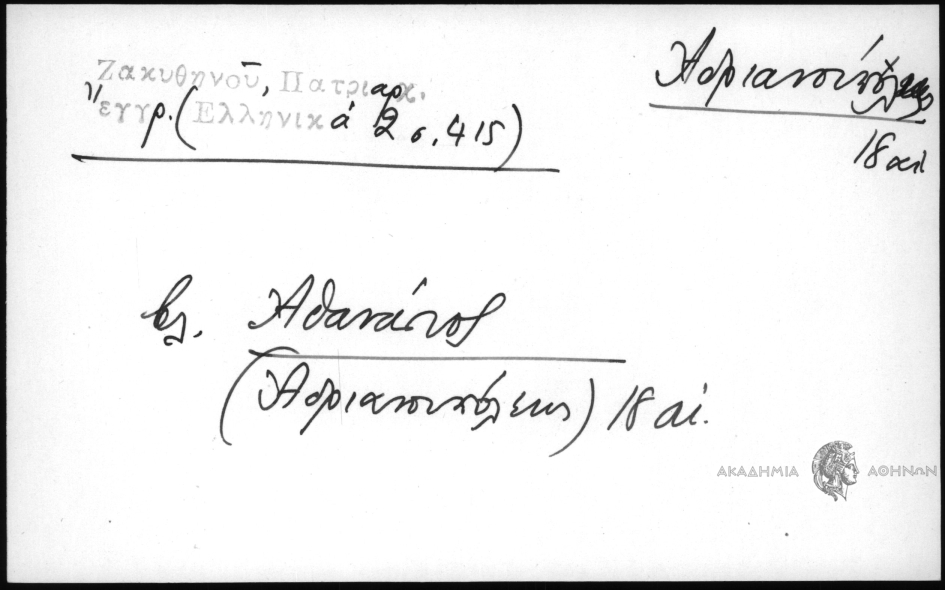 Ζακυθηνοῦ, Πατριαρχ.
ἔγγρ. (Ἑλληνικά 2 σ. 415)
Ἀδριανουπόλεως
18 αἰ
βλ. Ἀθανάσιος
(Ἀδριανουπόλεως) 18 αἰ.
ΑΚΑΔΗΜΙΑ ΑΘΗΝΩΝ